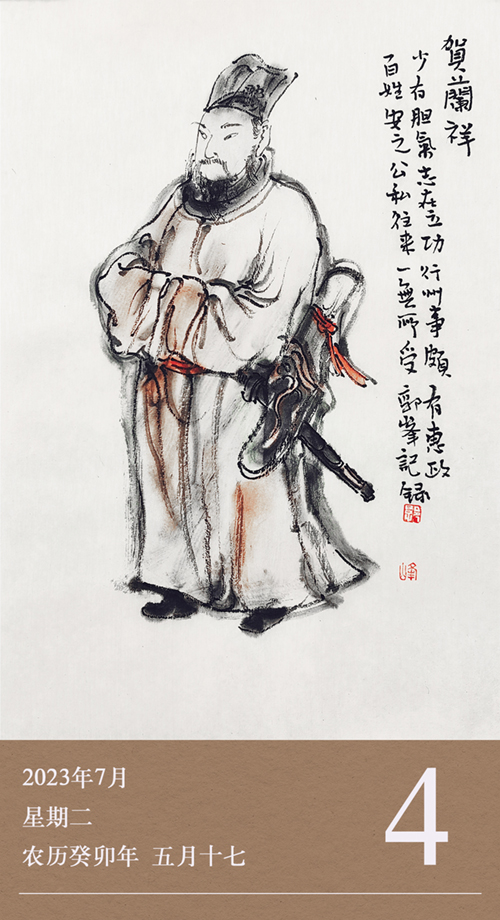 賀蘭祥
少有胆氣志在立功行州事頗有惠政
百姓安之公私往来一無所受郭峯記録
峰
2023年7月
星期二
农历癸卯年 五月十七
4